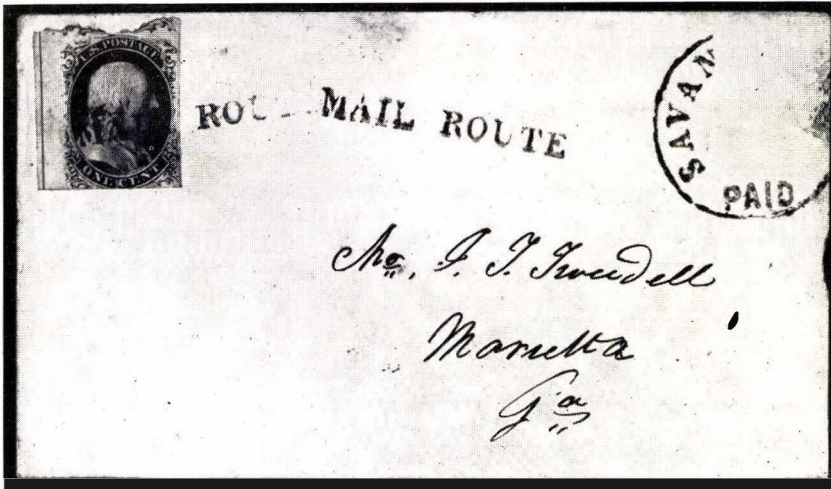 U.S. POSTAGE
ONE CENT
MAIL ROU
MAIL ROUTE
SAVAN
PAID
J. T. Tweedell
Marietta
Ga